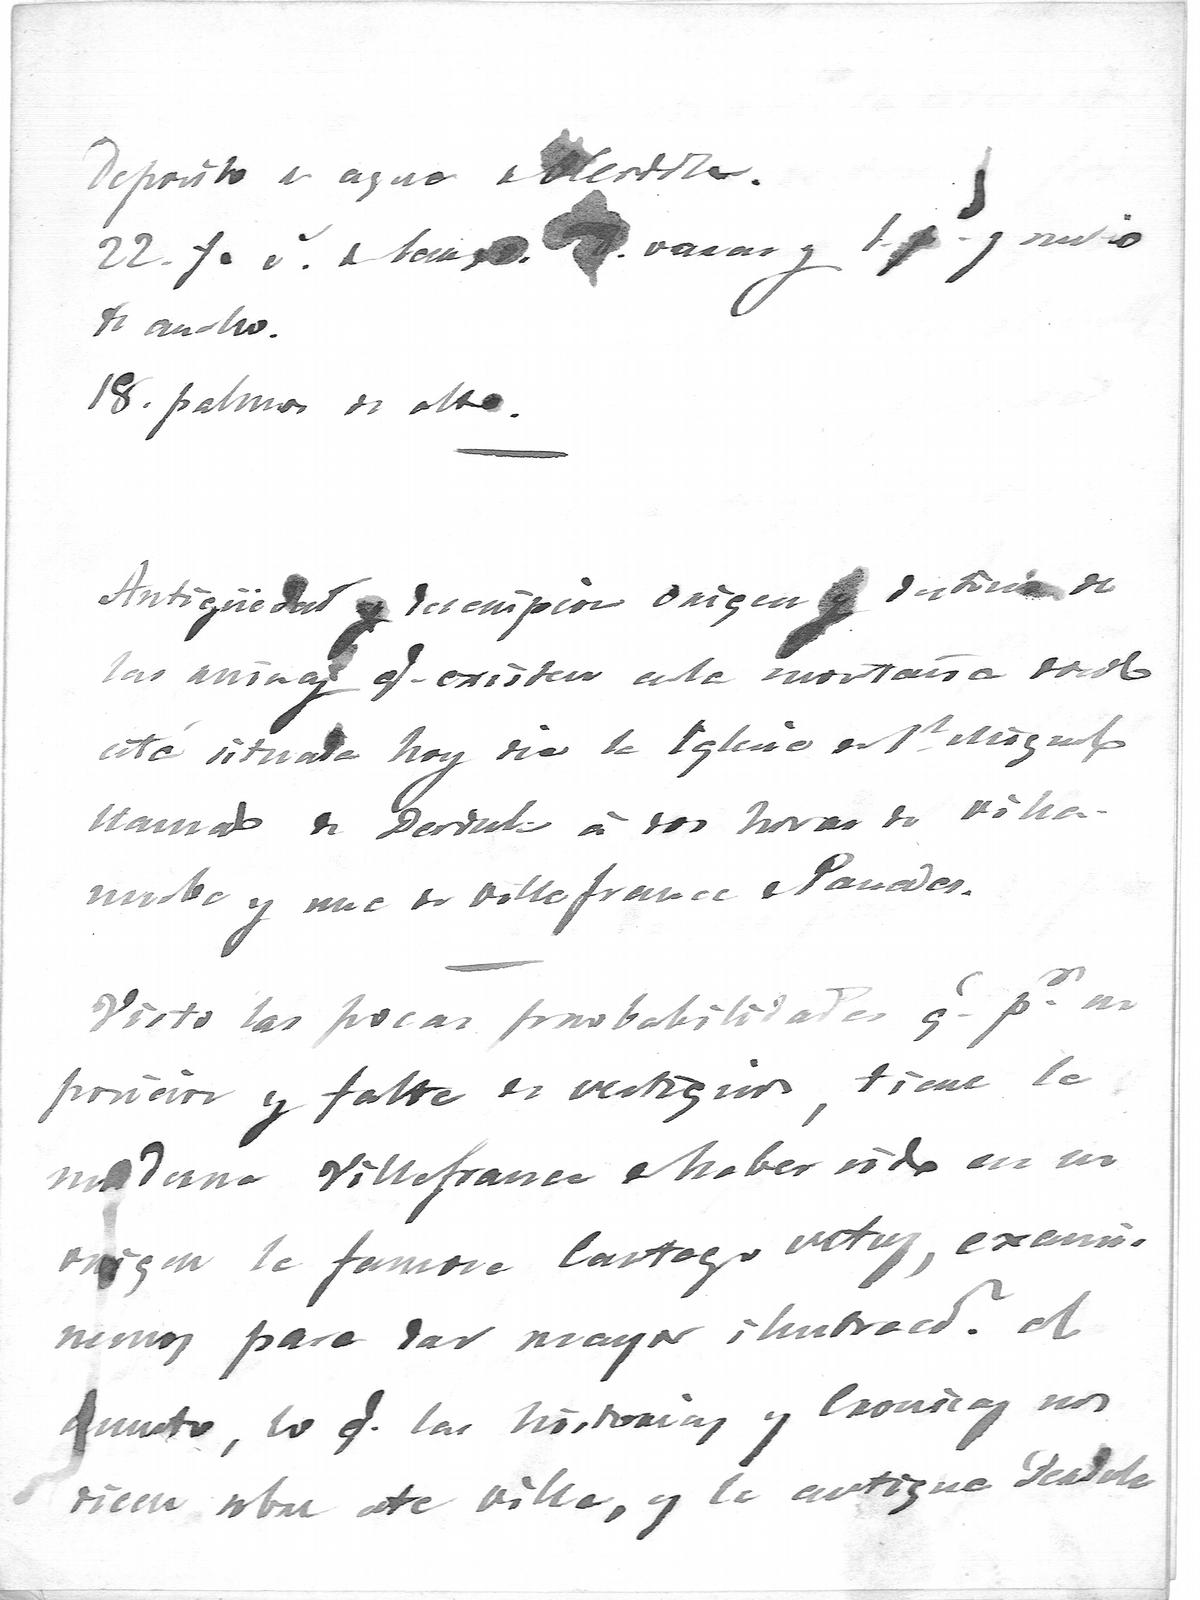 Deposito de agua de Olerdula.
22. de largo. varas y y medio
de ancho.
18. palmos de alto.
Antigüedad y descripcion origen y destino de
las ruinas q.e existen en la montaña donde
está situada hoy dia la Iglesia de S.n Miguel
llamado de Derdula á dos horas de Villa-
nueba y una de Villafranca de Panadés.
Visto las pocas probabilidades q.e p.r su
posicion y falta de vestigios, tiene la
moderna Villafranca de haber sido en su
origen la famosa Cartago vetus, exami-
nemos para dar mayor ilustrac.n al
punto, lo q.e las historias y Cronicas nos
dicen sobre esta villa, y la antigua Derdula